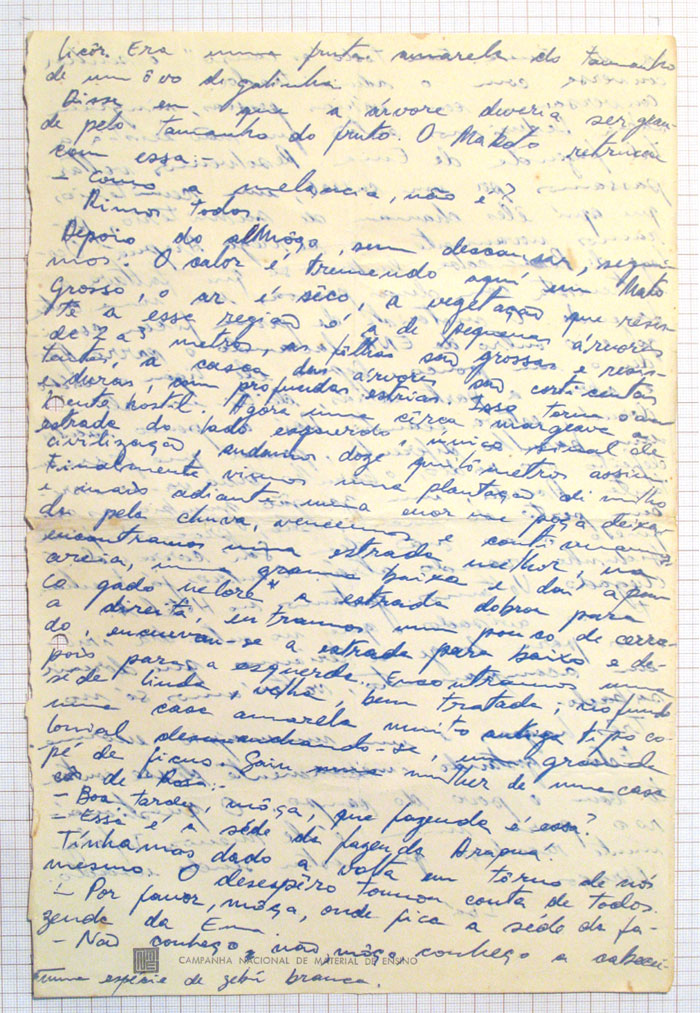 licôr. Era uma fruta amarela do tamanho
de um ôvo de galinha.
Disse eu que a árvore deveria ser gran-
de pelo tamanho do fruto. O Makoto retrucou
com essa:-
- Como a melancia, não é?
Rimos todos.
Depois do almôço, sem descansar, segui-
mos. O calôr é tremendo aqui em Mato
Grosso, o ar é sêco, a vegetação que resis-
te a esse região é a de pequenas árvores
de 2 a 3 metros, as fôlhas são grossas e resis-
tentes, a casca das árvores são corticentas
e duras, com profundas estrias. Isso torna o am
biente hostil. Agora uma cêrca margeava a
estrada do lado esquerdo, único sinal de
civilização, andamos doze quilômetros assim.
Finalmente vimos uma plantação de milho
e mais adiante uma enorme poça deixa-
da pela chuva, vencemos e continuamos,
encontramos uma estrada melhor, na
areia, uma grama baixa e daí a pou
co gado nelore" a estrada dobrou para
a direita, entramos num pouco de cerra-
do, encurvou-se a estrada para baixo e de-
pois para a esquerda. Encontramos uma
séde linda, velha, bem tratada; no fundo
uma casa amarela muito antiga tipo co-
lonial desmanchando-se, um grande
pé de ficus. Saiu mulher de uma casa
côr de Rosa:-
- Boa tarde, môça, que fazenda é essa?
- Essa é a séde da fazenda Arapua.
Tínhamos dado a volta em tôrno de nós
mesmo. O desespêro tomou conta de todos.
- Por favor, môça, onde fica a séde da fa-
zenda da Ema.
- Não conheço, não môço, conheço a cabecei-
CAMPANHA NACIONAL DE MATERIAL DE ENSINO
uma espécie de zebú branca.